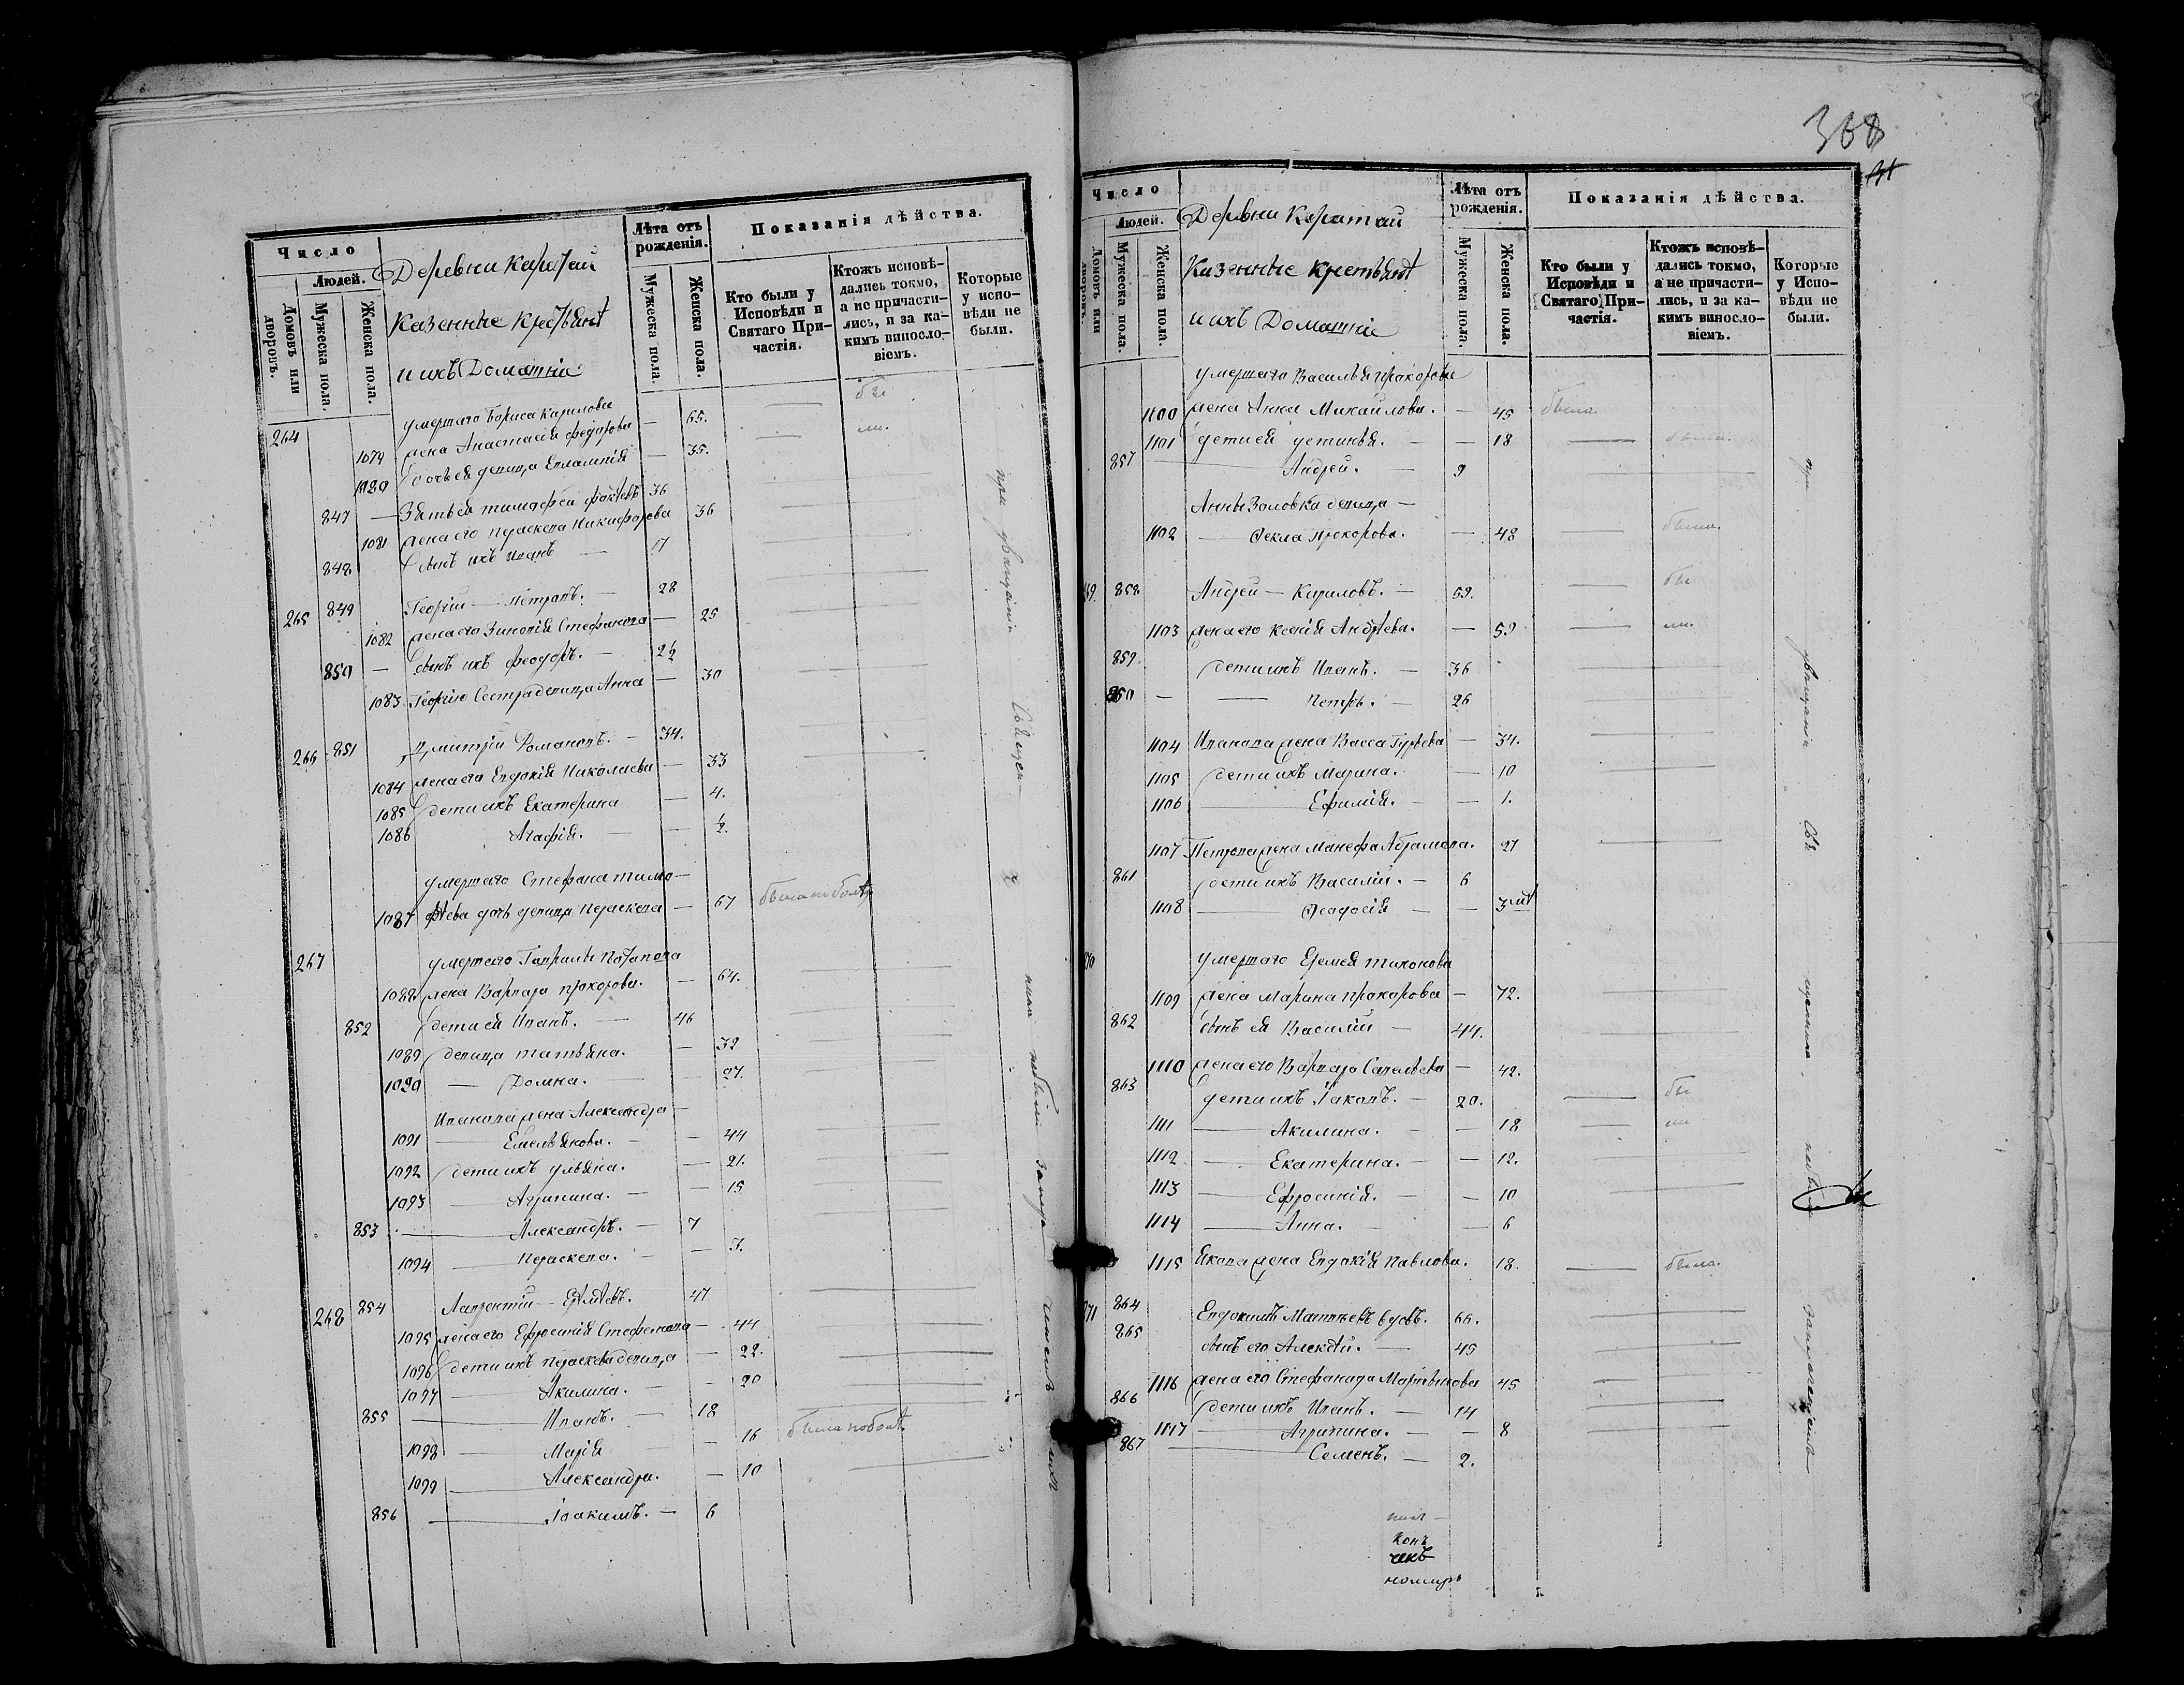 Число
Людей.
Домовъ или дворовъ.
Мужеска пола.
Женска пола.
Деревни Каратай
Казенные Крестьяне
и ихъ Домашніе
Лѣта отъ рожденія.
Мужеска пола.
Женска пола.
Показанія дѣйства.
Кто были у Исповѣди и Святаго Причастія.
Ктожъ исповѣдались токмо, а не причастились, и за какимъ винословіемъ.
Которые у исповѣди не были.
264 умершаго Бориса Кирилова
1079 жена Анастасія Федорова — 65. — бы
1080 дочь ея девица Евлампія — 35. — ли.
847 — Зять ея Тимофей 36
1081 жена его Параскева Никифорова 36
848 сынъ ихъ Иванъ — 17
265 849 Георгій — Петровъ. — 28
1082 жена его Зиновія Стефанова — 25
850 — сынъ ихъ Феодоръ. — 2½
1083 Георгію Сестра девица Анна — 30
266 851 Димитрій Романовъ. — 34.
1084 жена его Евдокія Николаева — 33
1085 дети ихъ Екатерина — 4.
1086 Агафія. — — ½.
умершаго Стефана Тимо-
1087 фѣева дочь девица Параскева — 67 была
267 умершаго Гаврила Потапова
1088 жена Варвара Прохорова. — 64.
852 дети ея Иванъ. — 46
1089 девица Татьяна. — 32
1090 — Домна. — 27.
Иванова жена Александра —
1091 Емельянова. — — 44
1092 дети ихъ Ульяна. — 21.
1093 Агрипина. — — 15
853 Александръ. — 7
1094 Параскева. — — 3.
268 854 Лаврентій — Ермѣевъ. 47
1095 жена его Ефросинія Стефанова — 44
1096 дети ихъ Параскева девица — 22.
1097 Акилина. — — 20
855 Иванъ. — 18
1098 Марія — 16 была
1099 Александра. — 10
856 Іоакимъ. — 6
368
Число
Людей.
Домовъ или дворовъ.
Мужеска пола.
Женска пола.
Деревни Каратай
Казенные Крестьяне
и ихъ Домашніе
Лѣта отъ рожденія.
Мужеска пола.
Женска пола.
Показанія дѣйства.
Кто были у Исповѣди и Святаго Причастія.
Ктожъ исповѣдались токмо, а не причастились, и за какимъ винословіемъ.
Которые у Исповѣди не были.
умершаго Василья Прохорова
1100 жена Анна Михайлова. — 45 была.
1101 дети ея Устинья. — — 18 — была.
857 Андрей. — 9
Анны Золовка девица —
1102 — Фекла Прохорова. — 48 — была.
858 Андрей — Кириловъ. — 59. — бы
1103 жена его Ксенія Андрѣева. — 59 — ли.
859. дети ихъ Иванъ. — 36
860 — Петръ. — 26
1104 Иванова жена Васса Гурьева — 34.
1105 дети ихъ Марина. — 10
1106 Ефимія. — — 1.
1107 Петрова жена Манефа Абрамова. 27
861 дети ихъ Василій. — 6
1108 Феодосія — — 3
умершаго Еремея Тихонова
1109 жена Марина Прохорова — 72.
862 сынъ ея Василій — 44.
1110 жена его Варвара Савельева — 42.
863 дети ихъ Іаковъ. — 20. — бы
1111 — Акилина. — — 18 — ли
1112 — Екатерина. — — 12.
1113 — Ефросинія. — — 10
1114 — Анна. — 6
1115 Якова жена Евдокія Павлова. 18. — была.
864 Евдокимъ Матвеевъ 66.
865 сынъ его Алексѣй. — 45
1116 жена его Стефанида Мартынова 45
866 дети ихъ Иванъ. — 14
1117 Агрипина. — — 8
867 Семенъ. — 2.